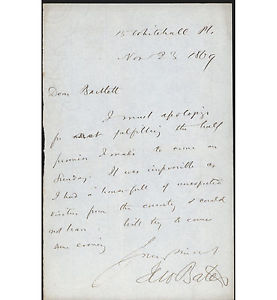 15 Whitehall Pl.
Nov 23 1869
Dear Bartlett
I must apologize
for not fulfilling the half
promise I made to come on
Sunday. It was impossible as
I had a house-full of unexpected
visitors from the country & could
not leave. will try to come
some evening
Yours sincerely